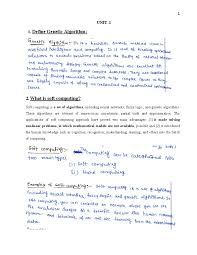 1
UNIT 2
1. Define Genetic Algorithm:
Genetic Algorithm:- It is a heuristic search method used in
artificial intelligence and computing. It is used for finding optimized
solutions to search problems based on the theory of natural selection
and evolutionary biology. Genetic algorithms are excellent for
searching through large and complex datasets. They are considered
capable of finding reasonable solutions to complex issues as they
are highly capable of solving unconstrained and constrained optimization
issues.
2. What is soft computing?
Soft computing is a set of algorithms, including neural networks, fuzzy logic, and genetic algorithms.
These algorithms are tolerant of imprecision, uncertainty, partial truth and approximation. The
applications of soft computing approach have proved two main advantages. (1) it made solving
nonlinear problems, in which mathematical models are not available, possible and (2) it introduced
the human knowledge such as cognition, recognition, understanding, learning, and others into the fields
of computing.
Soft computing:- The computing can be categorized into
two main types.
1) Soft computing
2) Hard computing
Examples of soft computing:- Soft computing is a set of algorithms
including neural networks, fuzzy logic and genetic algorithms. In
soft computing, you can consider an example where you can see
the evolution changes for a specific species like human nervous
system and behavior